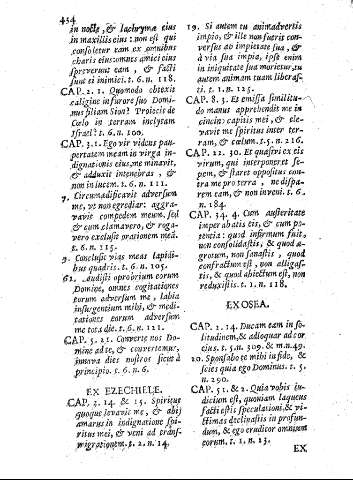 454
in nocte, & lachrymæ eius
in maxillis eius: non est qui
consoletur eam ex omnibus
charis eius: omnes amici eius
spreverunt eam, & facti
sunt ei inimici. t. 6. n. 118.
CAP. 2. 1. Quomodo obtexit
caligine in furore suo Domi-
nus filiam Sion? Proiecit de
Cœlo in terram inclytam
Israel? t. 6. n. 100.
CAP. 3. 1. Ego vir videns pau-
pertatem meam in virga in-
dignationis eius, me minavit,
& adduxit in tenebras, &
non in lucem. t. 6. n. 111.
7. Circumædificavit adversum
me, ut non egrediar: aggra-
vavit compedem meum, sed
& cum clamavero, & roga-
vero exclusit orationem meā.
t. 6. n. 115.
9. Conclusit vias meas lapidi-
bus quadris. t. 6. n. 105.
61. Audisti opprobrium eorum
Domine, omnes cogitationes
eorum adversum me, labia
insurgentium mihi, & medi-
tationes eorum adversum
me tota die. t. 6. n. 111.
CAP. 5. 21. Converte nos Do-
mine ad te, & convertemur,
innova dies nostros sicut à
principio. t. 6. n. 6.
EX EZECHIELE.
CAP. 3. 14. & 15. Spiritus
quoque levavit me, & abij
amarus in indignatione spi-
ritus mei, & veni ad trans-
migrationem. t. 2. n. 14.
19. Si autem tu animadvertis
impio, & ille non fuerit con-
versus ab impietate sua, &
à via sua impia, ipse enim
in iniquitate sua morietur, tu
autem animam tuam liberas-
ti. t. 1. n. 125.
CAP. 8. 3. Et emissa similitu-
do manus apprehendit me in
cincinno capitis mei, & ele-
vavit me spiritus inter ter-
ram, & cœlum. t. 5. n. 216.
CAP. 22. 30. Et quæsivi ex eis
virum, qui interponeret se-
pem, & staret oppositus con-
tra me pro terra, ne dissipa-
rem eam, & non inveni. t. 6.
n. 184.
CAP. 34. 4. Cum austeritate
imperabatis eis, & cum po-
tentia: quod infirmum fuit,
non consolidastis, & quod æ-
grotum, non sanastis, quod
confractum est, non alligas-
tis, & quod abiectum est, non
reduxistis. t. 1. n. 118.
EX OSEA.
CAP. 2. 14. Ducam eam in so-
litudinem, & adloquar ad cor
eius. t. 5. n. 309. & m. n. 49.
20. Sponsabo te mihi in fide, &
scies quia ego Dominus. t. 5.
n. 290.
CAP. 5. 1. & 2. Quia vobis iu-
dicium est, quoniam laqueus
facti estis speculationi, & vi-
ctimas declinastis in profun-
dum, & ego eruditor omnium
eorum. t. 1. n. 15.
EX